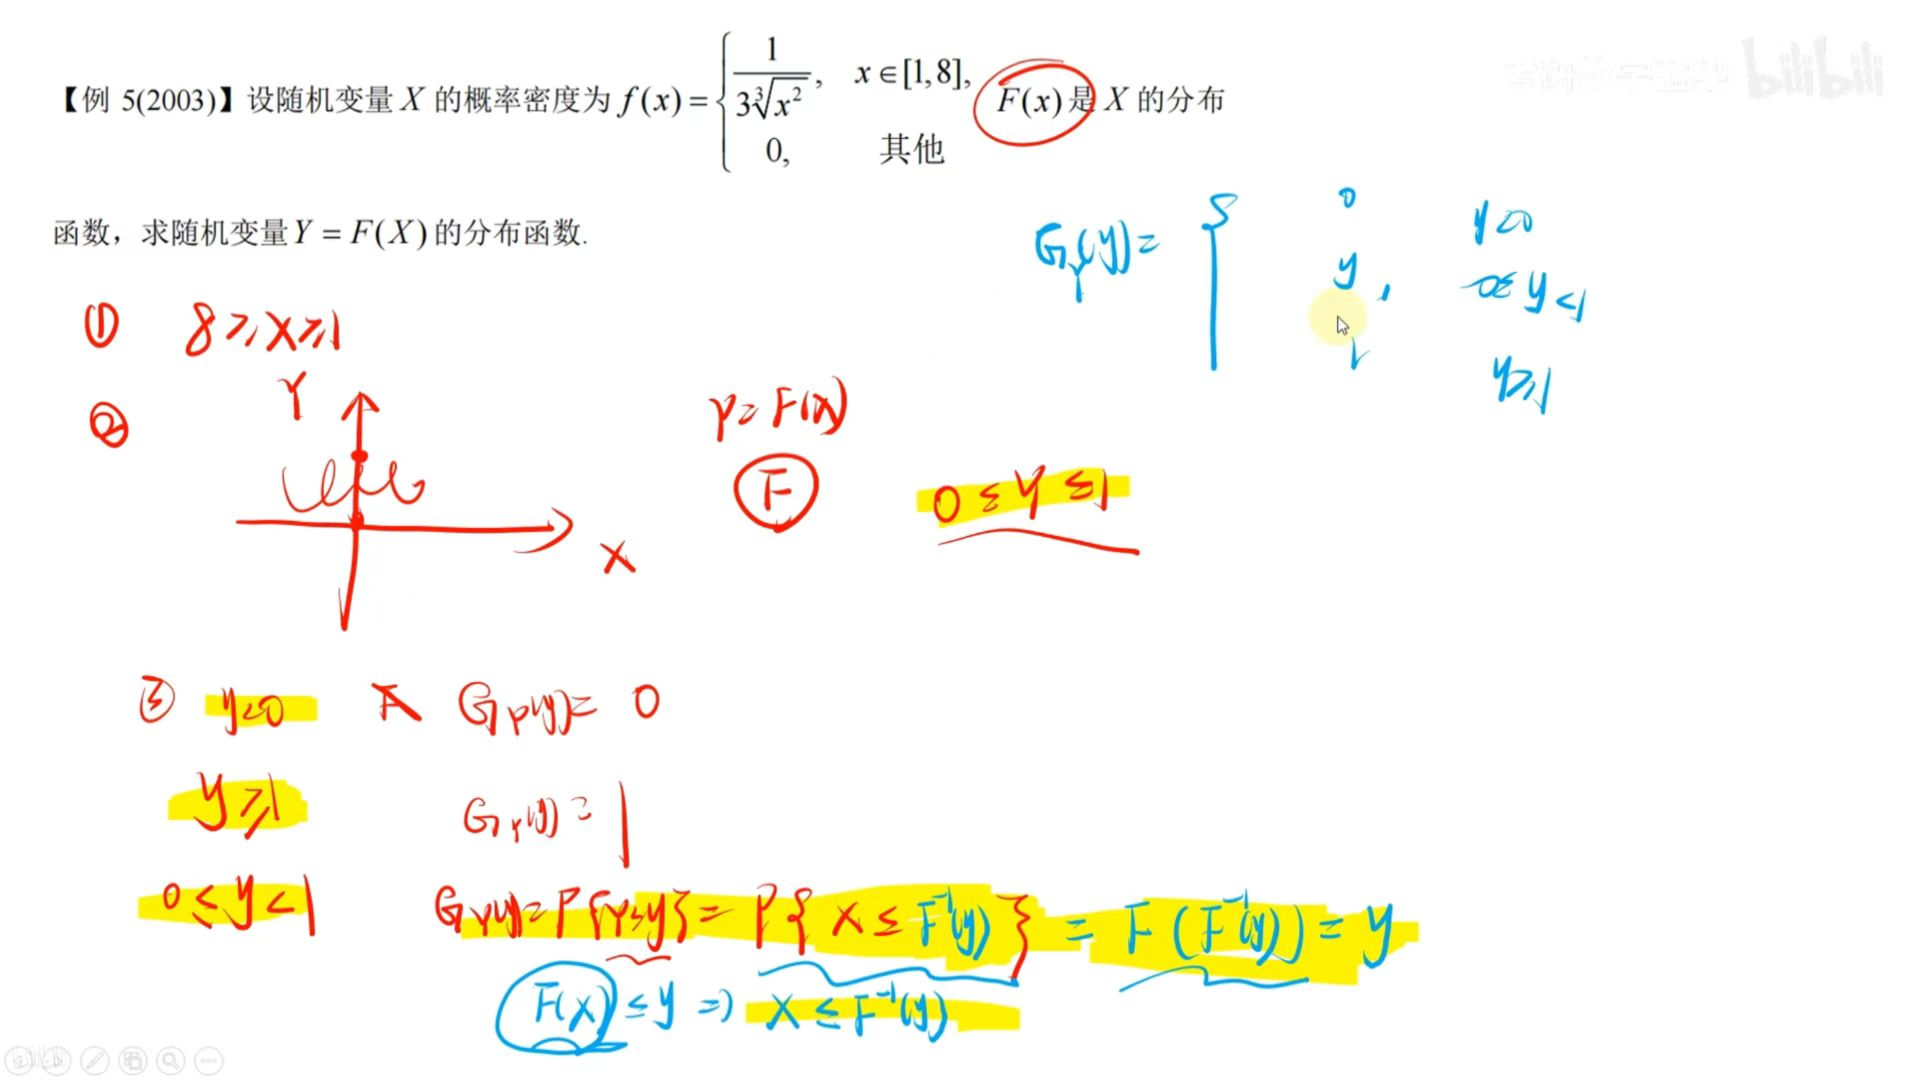 【例 5(2003)】设随机变量 X 的概率密度为 f(x) = { 1/(3∛x²), x∈[1,8], 0, 其他 F(x) 是 X 的分布
函数，求随机变量 Y = F(X) 的分布函数.
G_Y(y) = { 0 y<0
y, 0≤y<1
1 y≥1
① 8≥X≥1
②
Y
X
Y = F(X)
F
0 ≤ Y ≤ 1
③ y<0 G_Y(y) = 0
y≥1 G_Y(y) = 1
0≤y<1 G_Y(y) = P{Y≤y} = P{X ≤ F⁻¹(y)} = F(F⁻¹(y)) = y
F(X) ≤ y ⇒ X ≤ F⁻¹(y)
bilibili